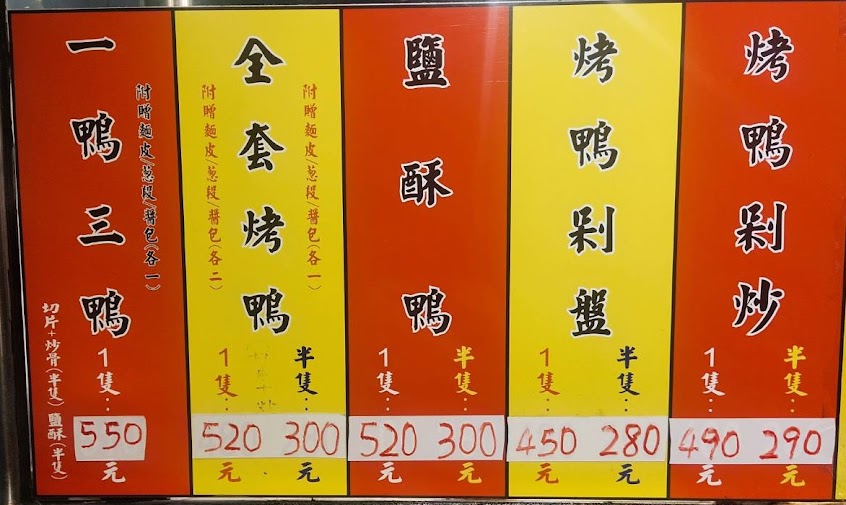 一鴨三鴨
附贈麵皮/蔥段/醬包(各一)
切片+炒骨(半隻)鹽酥(半隻)
1隻:550元
全套烤鴨
附贈麵皮/蔥段/醬包(各一)
附贈麵皮/蔥段/醬包(各二)
1隻:520元
半隻:300元
鹽酥鴨
1隻:520元
半隻:300元
烤鴨剁盤
1隻:450元
半隻:280元
烤鴨剁炒
1隻:490元
半隻:290元